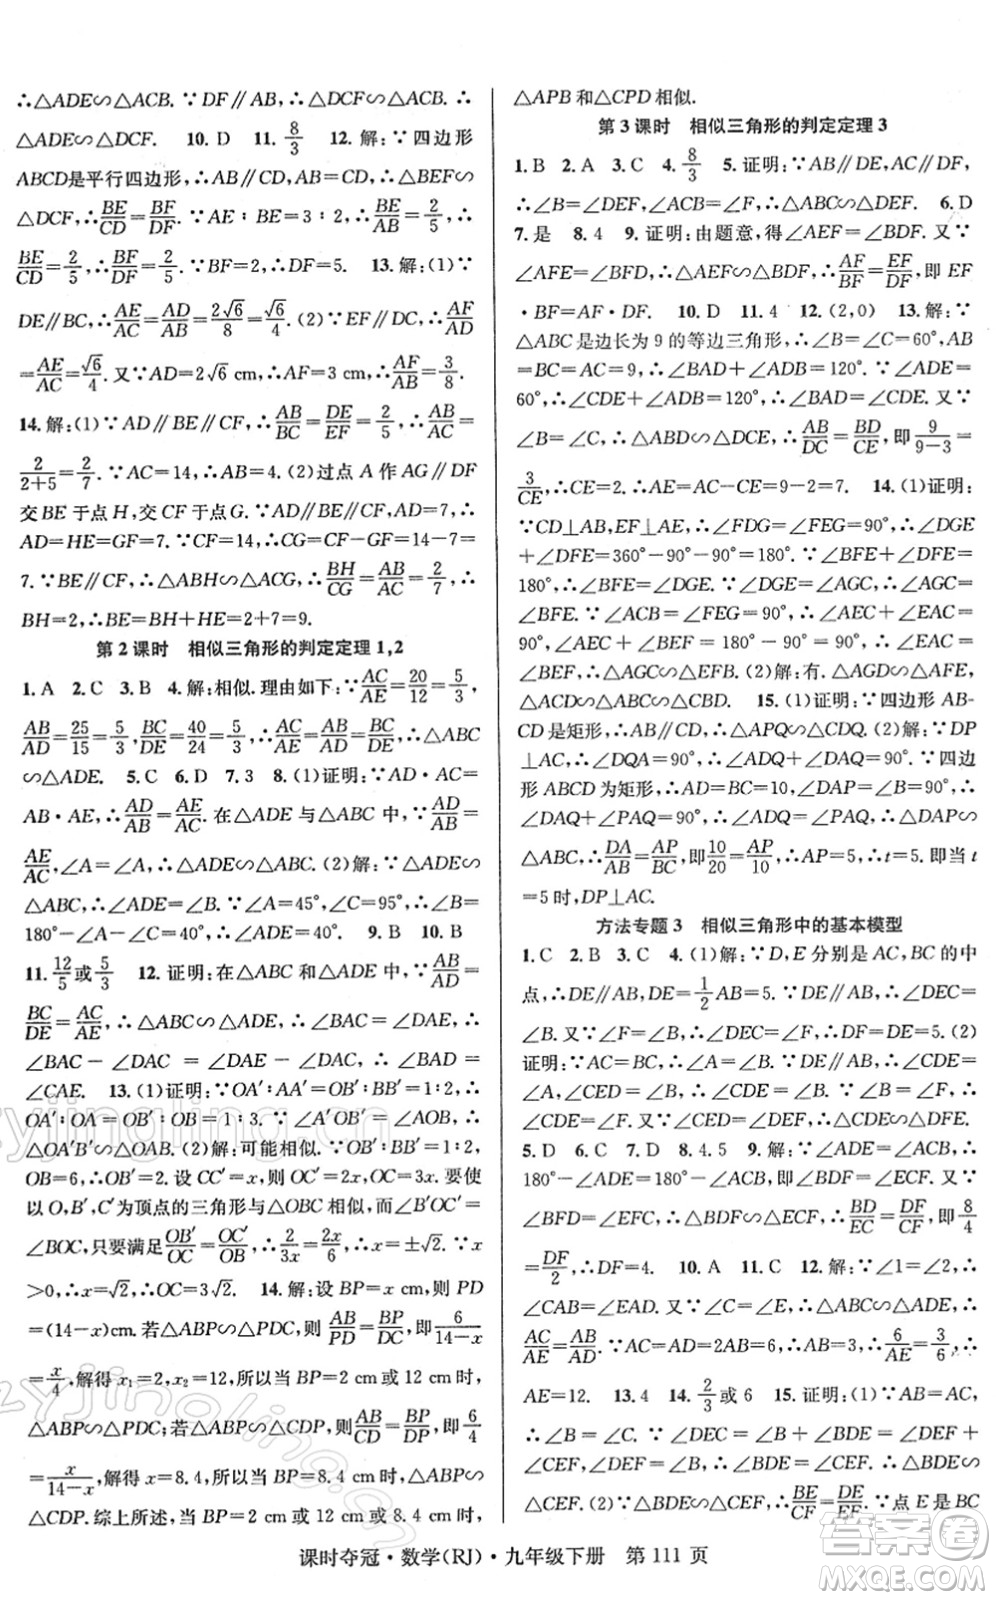 ∴△ADE∽△ACB. ∵DF∥AB, ∴△DCF∽△ACB. ∴
△ADE∽△DCF. 10. D 11. 8/3 12. 解: ∵四边形
ABCD是平行四边形, ∴AB∥CD, ∴△BEF∽
△DCF, ∴BE/CD=BF/DF. ∵AE∶BE=3∶2, ∴BE/AB=2/5, ∴
BE/CD=2/5, ∴BF/DF=2/5. ∵BF=2, ∴DF=5. 13. 解: (1)∵
DE∥BC, ∴AE/AC=AD/AB=2√6/8=√6/4. (2)∵EF∥DC, ∴AF/AD
=AE/AC=√6/4. 又∵AD=2√6 cm, ∴AF=3 cm. ∴AF/AB=3/8.
14. 解: (1)∵AD∥BE∥CF, ∴AB/BC=DE/EF=2/5, ∴AB/AC=
2/(2+5)=2/7. ∵AC=14, ∴AB=4. (2)过点A作AG∥DF
交BE于点H, 交CF于点G. ∵AD∥DF, AD=7, ∴
AD=HE=GF=7. ∵CF=14, ∴CG=CF-GF=14-7=
7. ∵BE∥CF, ∴△ABH∽△ACG, ∴BH/CG=AB/AC=2/7, ∴
BH=2, ∴BE=BH+HE=2+7=9.
第2课时 相似三角形的判定定理1,2
1. A 2. C 3. B 4. 解: 相似. 理由如下: ∵AC/AE=20/12=5/3,
AB/AD=25/15=5/3, BC/DE=40/24=5/3, ∴AC/AE=AB/AD=BC/DE, ∴△ABC
∽△ADE. 5. C 6. D 7. 3 8. (1)证明: ∵AD·AC=
AB·AE, ∴AD/AB=AE/AC. 在△ADE与△ABC中, ∵AD/AB=
AE/AC, ∠A=∠A, ∴△ADE∽△ABC. (2)解: ∵△ADE∽
△ABC, ∴∠ADE=∠B. ∵∠A=45°, ∠C=95°, ∴∠B=
180°-∠A-∠C=40°, ∴∠ADE=40°. 9. B 10. B
11. 12/5或5/3 12. 证明: 在△ABC和△ADE中, ∵AB/AD=
BC/DE=AC/AE, ∴△ABC∽△ADE, ∴∠BAC=∠DAE, ∴
∠BAC-∠DAC=∠DAE-∠DAC, ∴∠BAD=
∠CAE. 13. (1)证明: ∵OA′∶AA′=OB′∶BB′=1∶2, ∴
OA′∶OA=OB′∶OB=1∶3. ∵∠A′OB′=∠AOB, ∴
△OA′B′∽△OAB. (2)解: 可能相似. ∵OB′∶BB′=1∶2,
OB=6, ∴OB′=2. 设CC′=x, 则OC′=2x, OC=3x. 要使
以O, B′, C′为顶点的三角形与△OBC相似, 而∠B′OC′=
∠BOC, 只要满足OB′/OC=OC′/OB, ∴2/3x=2x/6, ∴x=±√2. ∵x
>0, ∴x=√2, ∴OC=3√2. 14. 解: 设BP=x cm, 则PD
=(14-x)cm. 若△ABP∽△PDC, 则AB/PD=BP/DC, 即6/(14-x)
=x/4, 解得x₁=2, x₂=12, 所以当BP=2 cm或12 cm时,
△ABP∽△PDC; 若△ABP∽△CDP, 则AB/CD=BP/DP, 即6/4
=x/(14-x), 解得x=8.4, 所以当BP=8.4 cm时, △ABP∽
△CDP. 综上所述, 当BP=2 cm或12 cm或8.4 cm时,
△APB和△CPD相似.
第3课时 相似三角形的判定定理3
1. B 2. A 3. C 4. 8/3 5. 证明: ∵AB∥DE, AC∥DF,
∴∠B=∠DEF, ∠ACB=∠F, ∴△ABC∽△DEF. 6. D
7. 是 8. 4 9. 证明: 由题意, 得∠AEF=∠BDF. 又∵
∠AFE=∠BFD, ∴△AEF∽△BDF, ∴AF/BF=EF/DF, 即EF
·BF=AF·DF. 10. D 11. 4 12. (2,0) 13. 解: ∵
△ABC是边长为9的等边三角形, ∴∠B=∠C=60°, AB
=BC=AC=9, ∴∠BAD+∠ADB=120°. ∵∠ADE=
60°, ∴∠ADB+∠EDC=120°, ∴∠BAD=∠EDC. 又∵
∠B=∠C, ∴△ABD∽△DCE, ∴AB/DC=BD/CE, 即9/(9-3)=
3/CE, ∴CE=2. ∴AE=AC-CE=9-2=7. 14. (1)证明:
∵CD⊥AB, EF⊥AE, ∴∠FDG=∠FEG=90°, ∴∠DGE
+∠DFE=360°-90°-90°=180°. ∵∠BFE+∠DFE=
180°, ∴∠BFE=∠DGE. ∵∠DGE=∠AGC, ∴∠AGC
=∠BFE. ∵∠ACB=∠FEG=90°, ∴∠AEC+∠EAC=
90°, ∠AEC+∠BEF=180°-90°=90°, ∴∠EAC=
∠BEF, ∴△AGC∽△EFB. (2)解: 有. △AGD∽△AFE,
△ACD∽△ABC∽△CBD. 15. (1)证明: ∵四边形AB-
CD是矩形, ∴AB∥CD, ∴△APQ∽△CDQ. (2)解: ∵DP
⊥AC, ∴∠DAC+∠ADP=∠AQD=90°. ∵四边
形ABCD为矩形, ∴AD=BC=10, ∠DAP=∠B=90°,
∴∠DAQ+∠PAQ=90°, ∴∠ADQ=∠PAQ, ∴△DAP∽
△ABC, ∴DA/AB=AP/BC, 即10/20=AP/10, ∴AP=5, ∴t=5. 即当t
=5时, DP⊥AC.
方法专题3 相似三角形中的基本模型
1. C 2. B 3. C 4. (1)解: ∵D, E分别是AC, BC的中
点, ∴DE∥AB, DE=1/2AB=5. ∵DE∥AB, ∴∠DEC=
∠B. 又∵∠F=∠B, ∴∠DEC=∠F, ∴DF=DE=5. (2)
证明: ∵AC=BC, ∴∠A=∠B. ∵DE∥AB, ∴∠CDE=
∠A, ∠CED=∠B, ∴∠CDE=∠B. ∵∠B=∠F, ∴
∠CDE=∠F. 又∵∠CED=∠DEF, ∴△CDE∽△DFE.
5. D 6. C 7. D 8. 4.5 9. 解: ∵∠ADE=∠ACB, ∴
180°-∠ADE=180°-∠ACB, 即∠BDF=∠ECF. 又∵
∠BFD=∠EFC, ∴△BDF∽△ECF, ∴BD/EC=DF/CF, 即8/4
=DF/2, ∴DF=4. 10. A 11. C 12. 解: ∵∠1=∠2, ∴
∠CAB=∠EAD. 又∵∠C=∠E, ∴△CAB∽△EAD, ∴
AC/AE=AB/AD. ∵AC=AD=2AB=6, ∴AB=3, ∴6/AE=3/6, ∴
AE=12. 13. 4 14. 2/3或6 15. 证明: (1)∵AB=AC,
∴∠B=∠C. ∵∠BDE=180°-∠B-∠DEB,
∠CEF=180°-∠DEF-∠DEB, ∠DEF=∠B, ∴∠BDE=
∠CEF, ∴△BDE∽△CEF. (2)∵△BDE∽
△CEF, ∴BE/CF=DE/EF. ∵点E是BC
课时夺冠·数学(RJ)·九年级下册 第111页